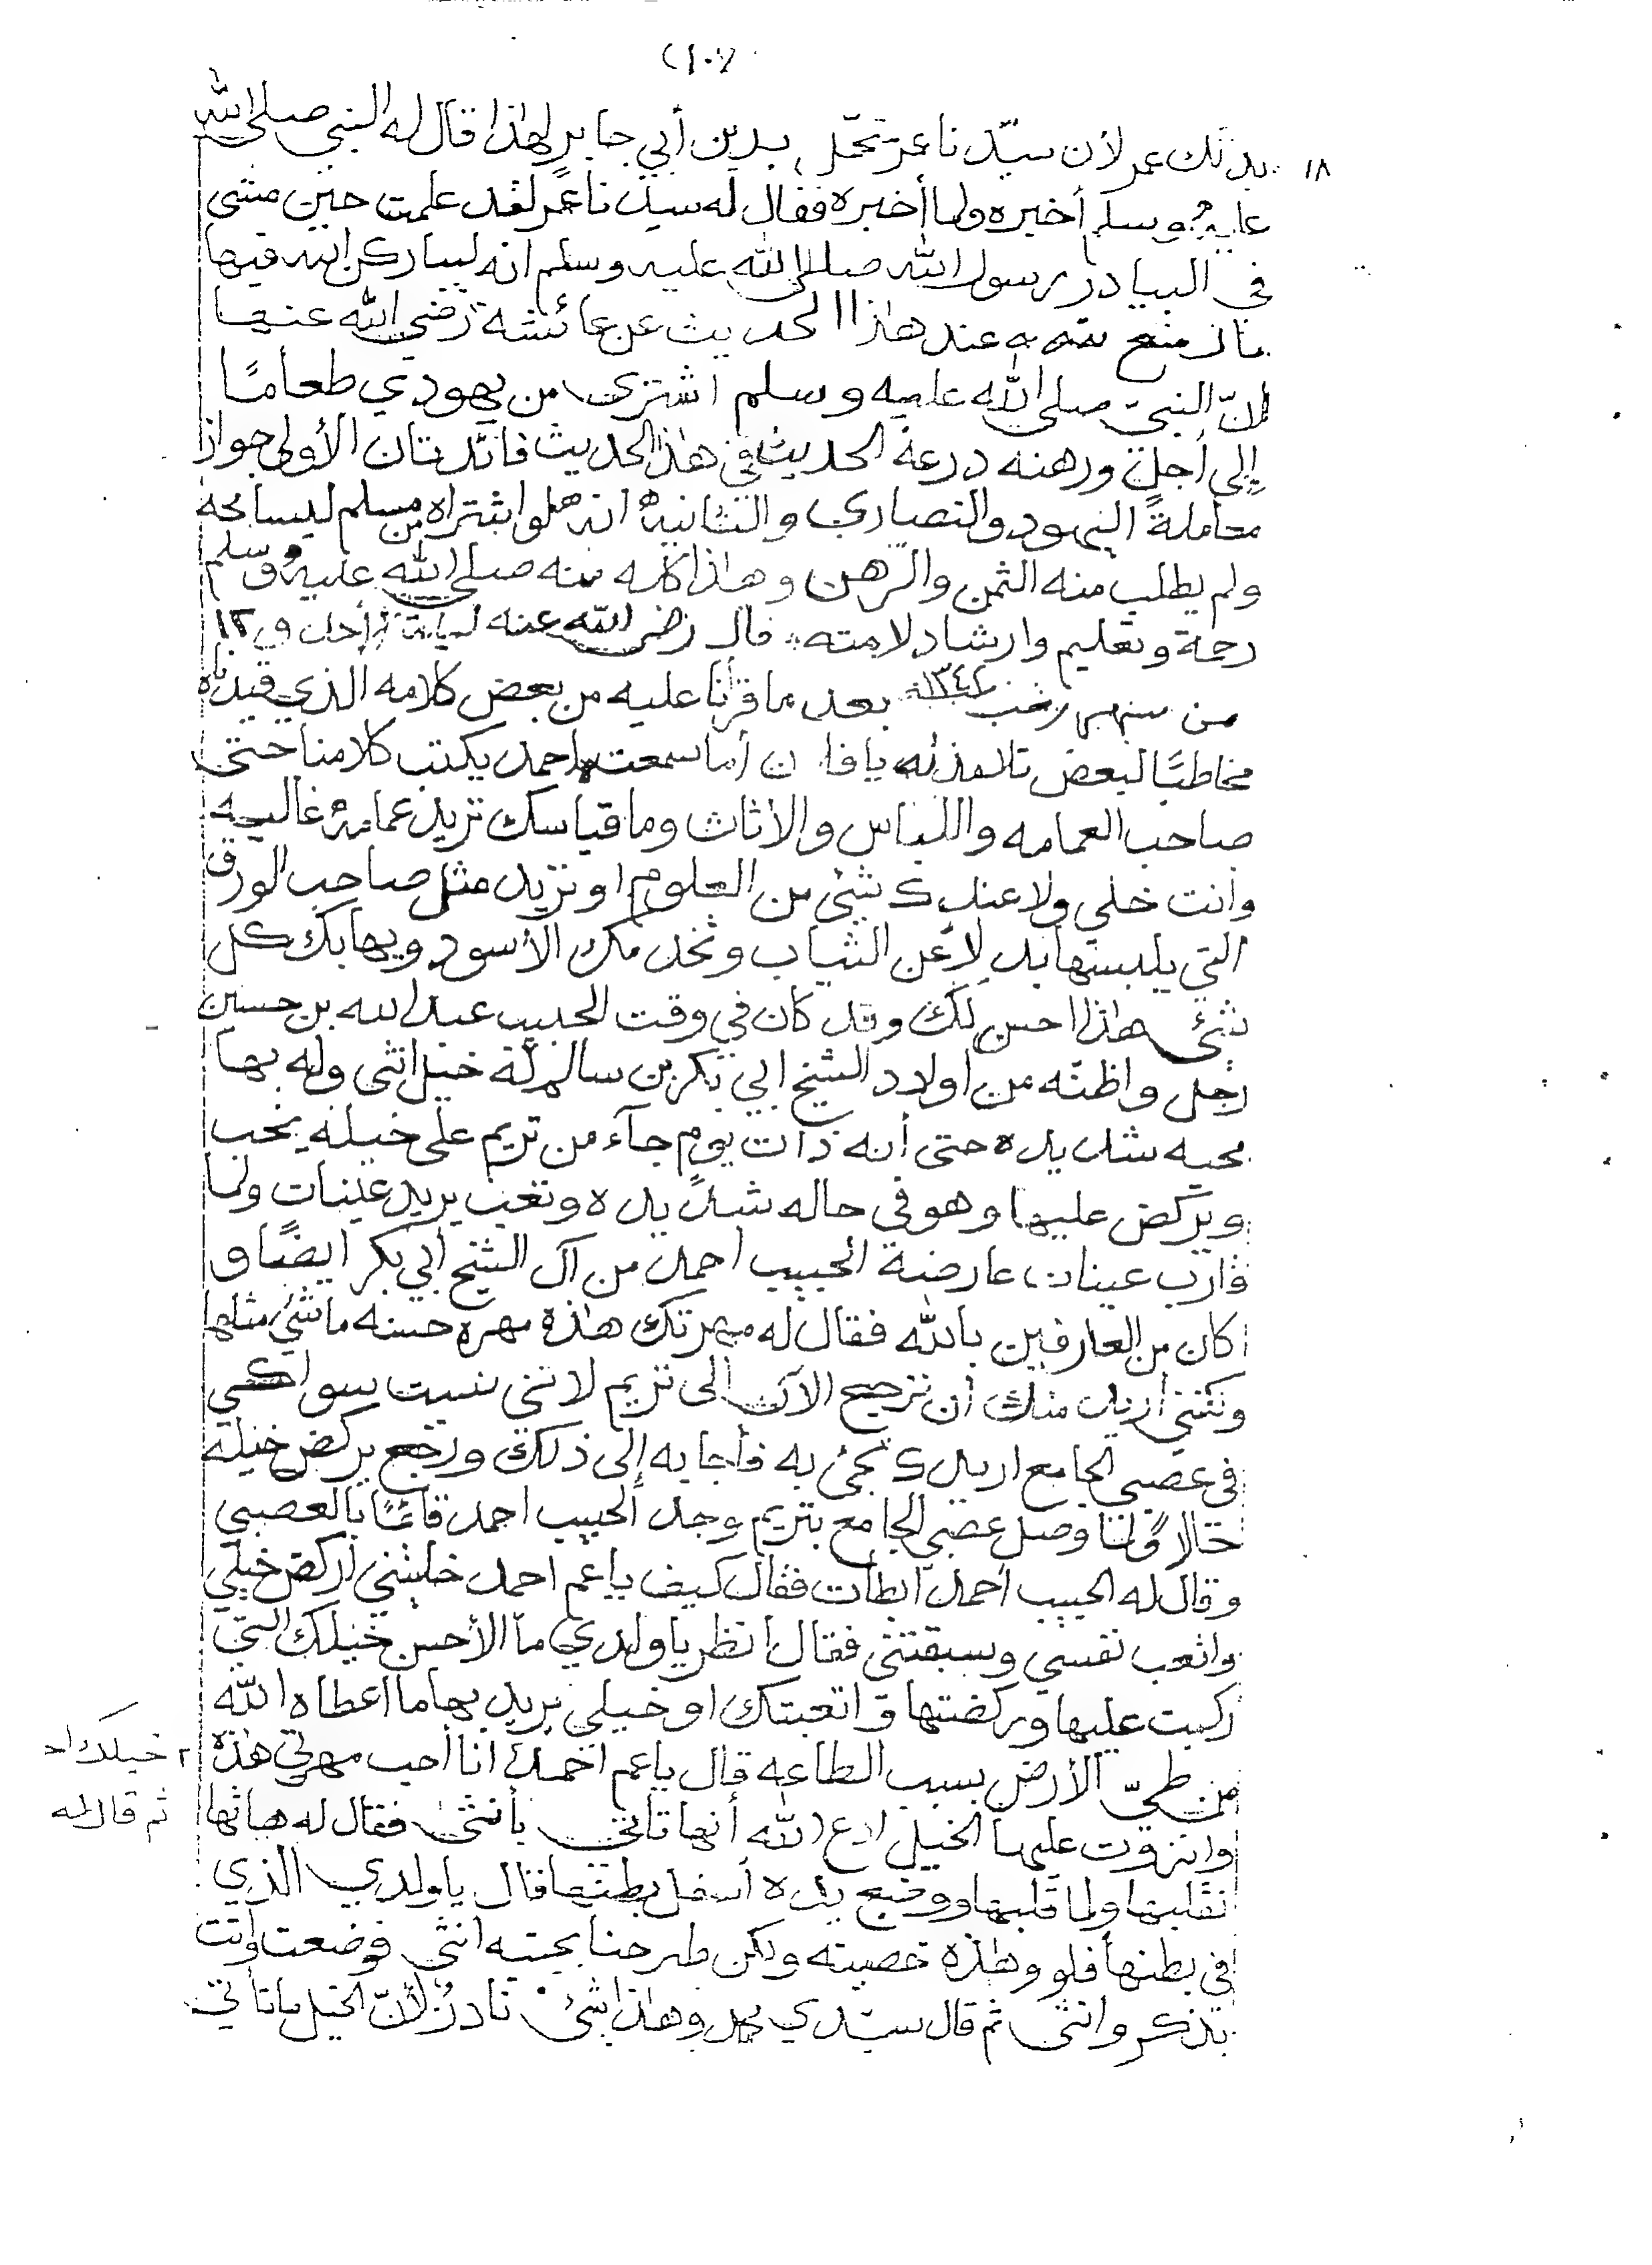 (١٠٧)
١٨ بذلك عمر لأن سيّدنا عمر تحمّل بدين أبي جابر لهذا قال له النبي صلى الله
عليه وسلم أخبره ولما أخبره فقال له سيدنا عمر لقد علمت حين مشى
في البيادر رسول الله صلى الله عليه وسلم انه ليباركن الله فيها
عند هٰذا الحديث عن عائشة رضي الله عنها
انّ النبيّ صلى الله عليه وسلم اشترى من يهودي طعامًا
إلى أجلٍ ورهنه درعه الحديث في هٰذا الحديث فائدتان الأولى جواز
معاملة اليهود والنصارى والثانية انه لو اشتراه من مسلم ليسامحه
ولم يطلب منه الثمن والرهن وهٰذا كله منه صلى الله عليه وسلم
رحمة وتعليم وارشاد لامته قال رضي الله عنه ليلة أحد في ١٢
من شهر رجب بعد ما قرأنا عليه من بعض كلامه الذي قيدناه
مخاطبًا لبعض تلامذته يا فلان أما سمعت احمد يكتب كلامنا حتى
صاحب العمامه واللباس والأثاث وما قياسك تريد عمامة غاليه
وانت خلي ولا عندك شيئ من العلوم او تريد مثل صاحب الورق
التي يلبسها بدلاً عن الثياب وتخدمك الأسود ويهابك كل
شيئ هٰذا احسن لك وقد كان في وقت الحبيب عبدالله بن حسين
رجل واظنّه من اولاد الشيخ ابي بكر بن سالم له خيل انثى وله بها
محبه شديده حتى أنه ذات يوم جآء من تريم على خيله يخب
ويركض عليها وهو في حاله شديده وتعب يريد عينات ولما
قارب عينات عارضة الحبيب احمد من آل الشيخ أبي بكر ايضًا و
كان من العارفين بالله فقال له مهرتك هٰذه مهره حسنه ما شيئ مثلها
ولكنني أريد منك أن ترجع الآن الى تريم لانني نسيت سواكي
في عصبي الجامع اريدك تجيئ به فأجابه إلى ذلك ورجع يركض خيله
حالاً ولما وصل عصبي الجامع بتريم وجد الحبيب احمد قائمًا بالعصبي
وقال له الحبيب أحمد أبطأت فقال كيف يا عم احمد خليتني أركض خيلي
واتعب نفسي وسبقتني فقال انظر يا ولدي ما الأحسن خيلك التي
ركبت عليها وركضتها واتعبتك او خيلي يريد بها ما أعطاه الله
من طيّ الأرض بسبب الطاعه قال يا عم احمد أنا أحب مهرتي هٰذه
وانزوت عليها الخيل ادع الله أنها تأتي بأنثى فقال له هاتها
نقلبها ولما قلبها ووضع يده أسفل بطنها قال يا ولدي الذي
في بطنها فلو وهٰذه خصيته ولكن طرحنا بجنبه انثى فوضعت وأتت
بذكر وانثى ثم قال سيّدي محمد وهٰذا شيئ نادرٌ لأنّ الخيل ما تأتي
خيلك اد
ثم قال له